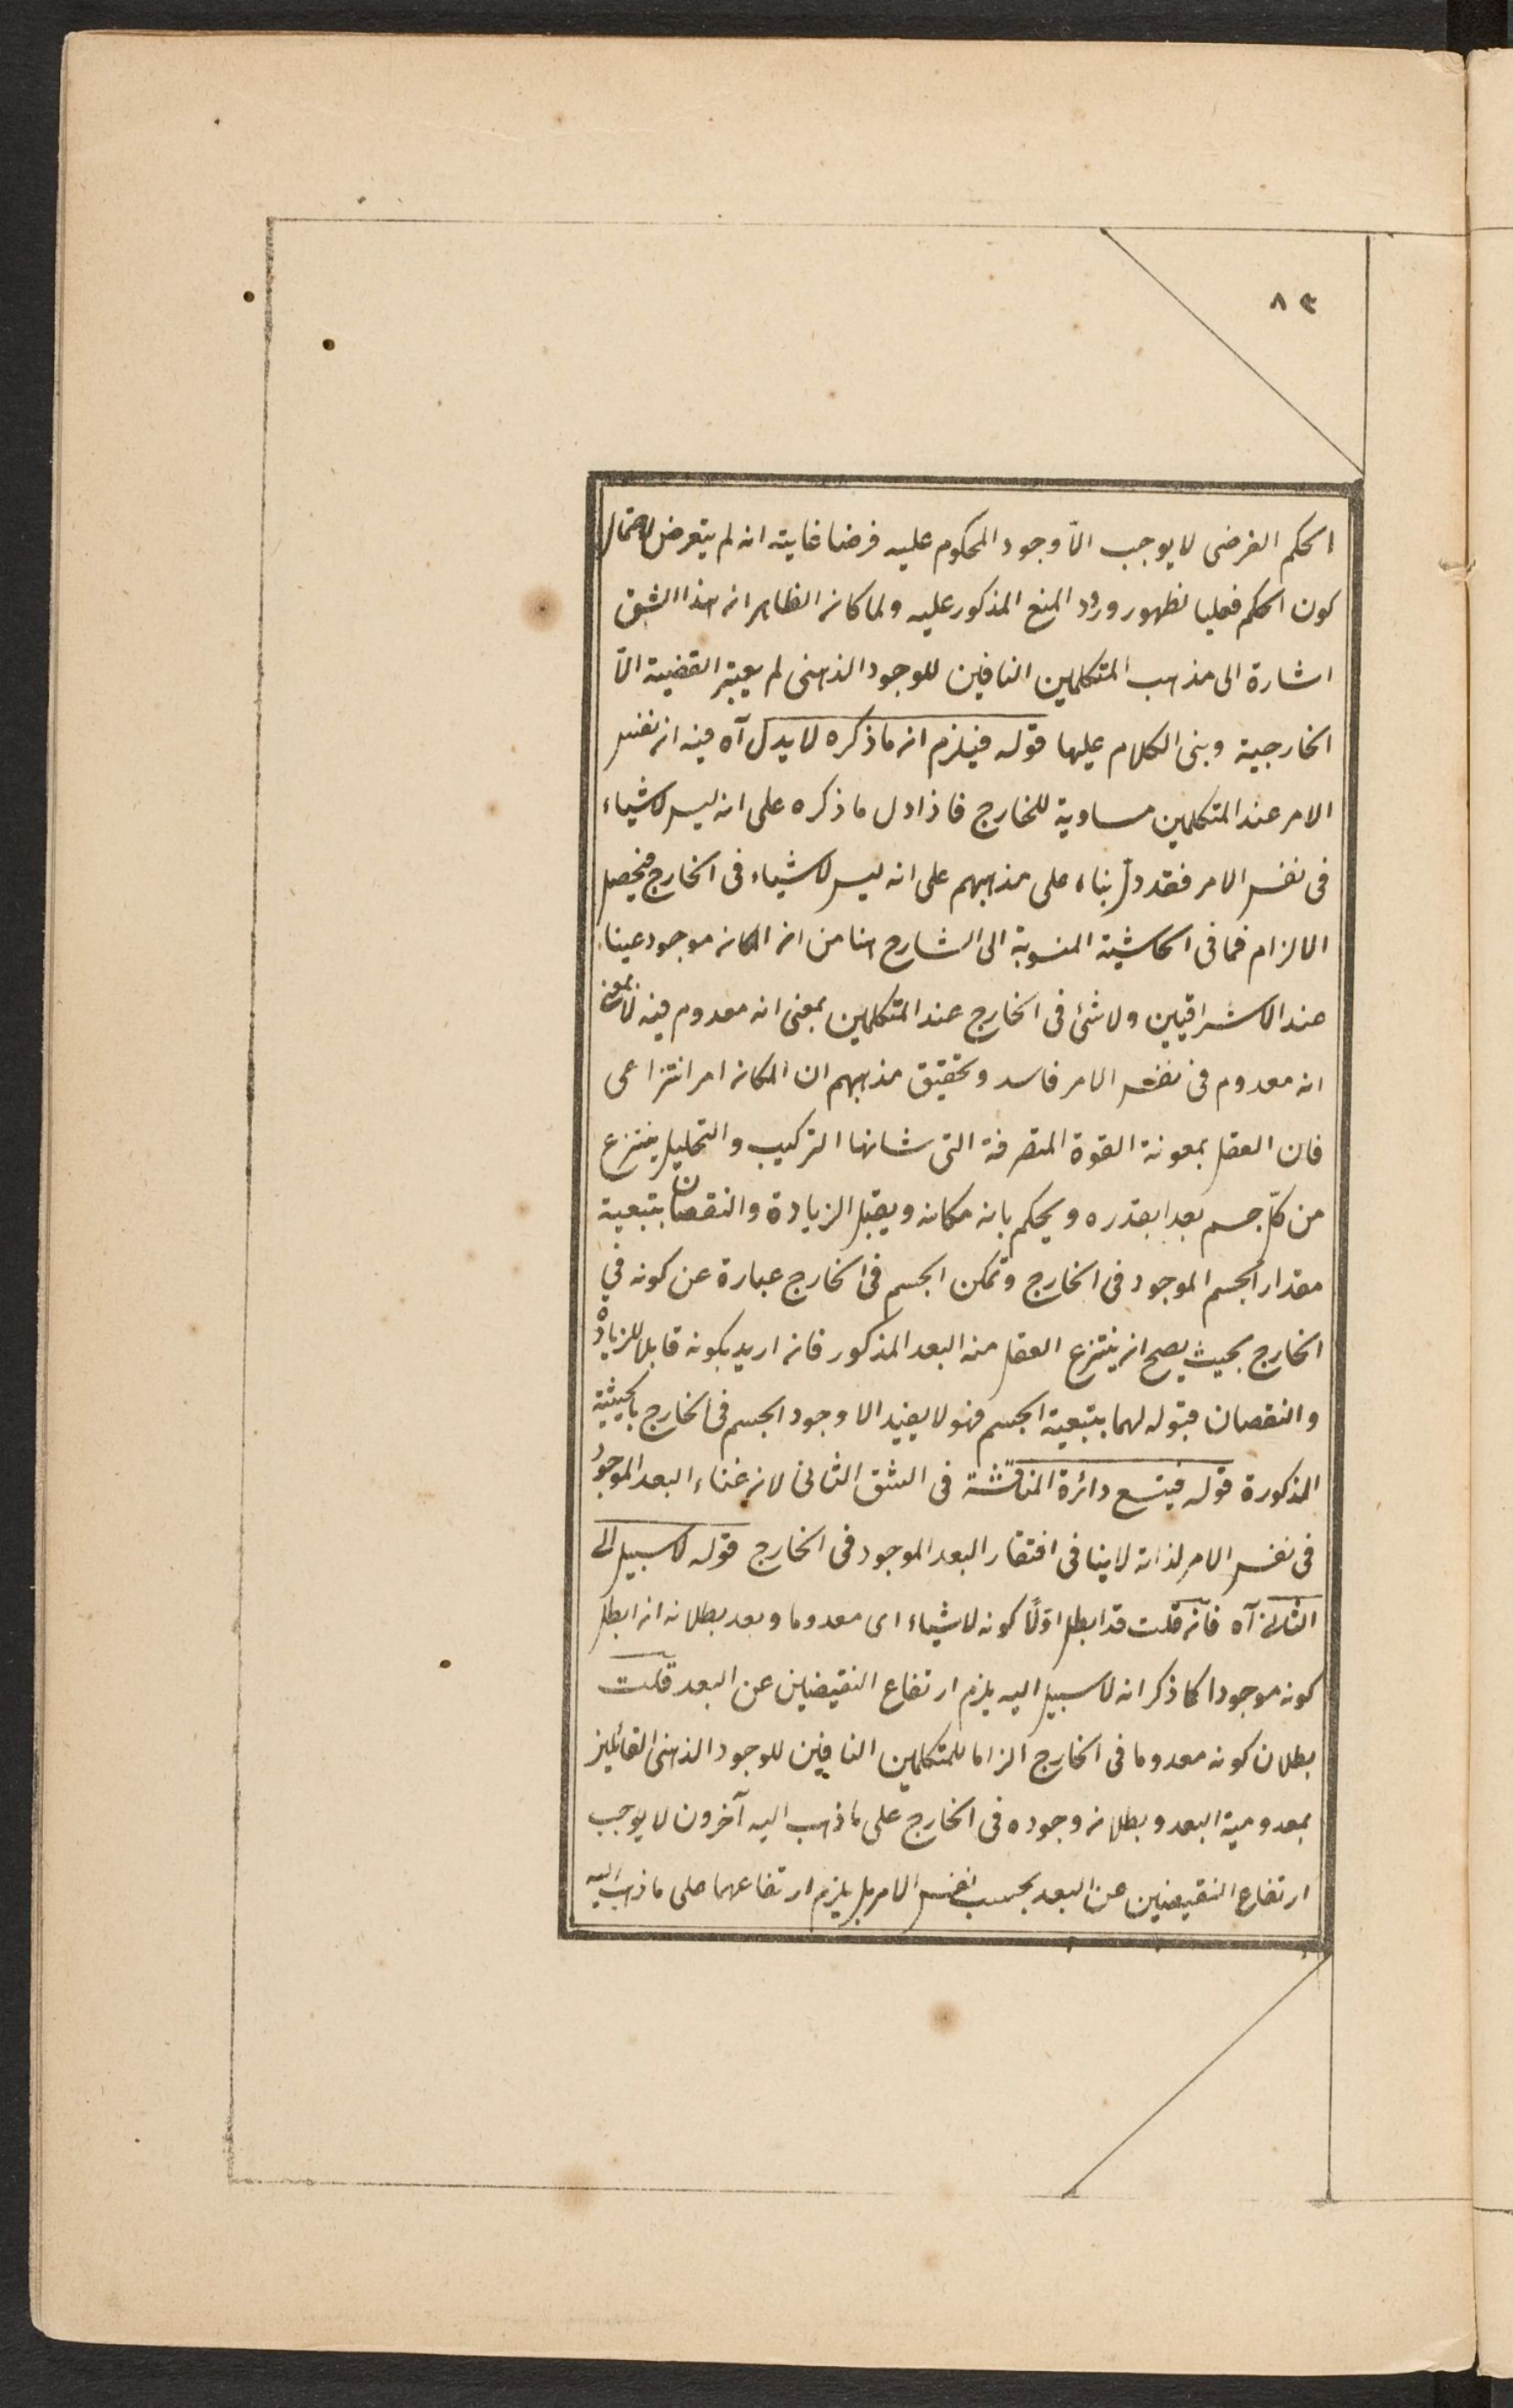 ٨٣
الحكم الفرضى لا يوجب الّا وجود المحكوم عليه فرضا غايته انه لم يتعرض لاحتمال
كون الحكم فعليا لظهور ورود المنع المذكور عليه ولما كان الظاهر ان هذا الشق
اشارة الى مذهب المتكلمين النافين للوجود الذهنى لم يعتبر القضية الّا
الخارجية وبنى الكلام عليها قوله فيلزم ان ما ذكره لا يدل آه فيه ان نفس
الامر عند المتكلمين مساوية للخارج فاذا دل ما ذكره على انه ليس لاشياء
فى نفس الامر فقد دل بناء على مذهبهم على انه ليس لاشياء فى الخارج فيحصل
الالزام فما فى الحاشية المنسوبة الى الشارح هنا من ان المكان موجود عينا
عند الاشراقيين ولا شئ فى الخارج عند المتكلمين بمعنى انه معدوم فيه لا بمعنى
انه معدوم فى نفس الامر فاسد وتحقيق مذهبهم ان المكان امر انتزاعى
فان العقل بمعونة القوة المتصرفة التى شانها التركيب والتحليل ينتزع
من كلّ جسم بعدا بقدره ويحكم بانه مكانه ويقبل الزيادة والنقصان بتبعية
مقدار الجسم الموجود فى الخارج وتمكن الجسم فى الخارج عبارة عن كونه فى
الخارج بحيث يصح ان ينتزع العقل منه البعد المذكور فان اريد بكونه قابلا للزيادة
والنقصان قبوله لهما بتبعية الجسم فهو لا يفيد الا وجود الجسم فى الخارج بالحيثية
المذكورة قوله فيتسع دائرة المناقشة فى الشق الثانى لان غناء البعد الموجود
فى نفس الامر لذاته لا ينافى افتقار البعد الموجود فى الخارج قوله لا سبيل الى
الثانى آه فان قلت قد ابطل اوّلًا كونه لاشياء اى معدوما وبعد بطلانه ان ابطل
كونه موجودا كما ذكر انه لا سبيل اليه يلزم ارتفاع النقيضين عن البعد قلت
بطلان كونه معدوما فى الخارج الزاما للمتكلمين النافين للوجود الذهنى القائلين
بمعدومية البعد وبطلان وجوده فى الخارج على ما ذهب اليه آخرون لا يوجب
ارتفاع النقيضين عن البعد بحسب نفس الامر بل يلزم ارتفاعهما على ما ذهب اليه